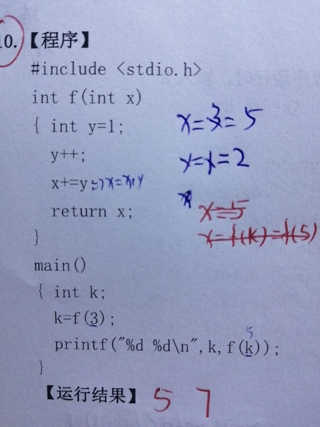 10.【程序】
#include <stdio.h>
int f(int x)
{ int y=1;
x=3=5
y++;
y=1=2
x+=y=>x=x+y
return x;
x=5
}
x=f(k)=f(5)
main()
{ int k;
k=f(3);
5
printf("%d %d\n",k,f(k));
}
【运行结果】 5 7